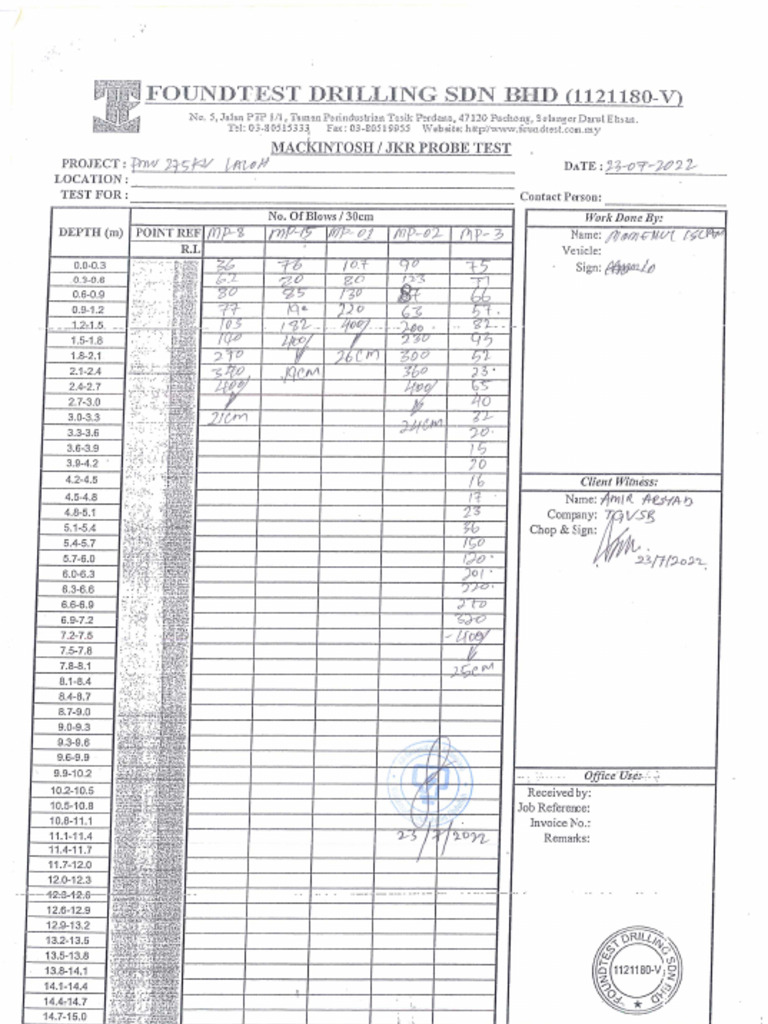 FOUNDTEST DRILLING SDN BHD (1121180-V)
No. 5, Jalan PTP 1/1, Taman Perindustrian Tasik Perdana, 47120 Puchong, Selangor Darul Ehsan.
Tel: 03-80515333 Fax: 03-80519955 Website:
MACKINTOSH / JKR PROBE TEST
PROJECT : PMU 275KV DATE : 23-07-2022
LOCATION :
TEST FOR : Contact Person:
No. Of Blows / 30cm
DEPTH (m) POINT REF MP-8 MP-15 MP-01 MP-02 MP-3
R.L
0.0-0.3 36 76 107 90 75
0.3-0.6 62 80 80 123 71
0.6-0.9 80 85 130 87 66
0.9-1.2 77 190 220 63 57
1.2-1.5 103 182 400/ 200 82
1.5-1.8 140 400/ 230 93
1.8-2.1 270 26cm 300 52
2.1-2.4 19cm 360 23
2.4-2.7 400/ 400/ 65
2.7-3.0 40
3.0-3.3 21cm 24cm 32
3.3-3.6 20
3.6-3.9 15
3.9-4.2 20
4.2-4.5 16
4.5-4.8 17
4.8-5.1 23
5.1-5.4 36
5.4-5.7 150
5.7-6.0 120
6.0-6.3 201
6.3-6.6 220
6.6-6.9 270
6.9-7.2 320
7.2-7.5 400/
7.5-7.8
7.8-8.1 25cm
8.1-8.4
8.4-8.7
8.7-9.0
9.0-9.3
9.3-9.6
9.6-9.9
9.9-10.2
10.2-10.5
10.5-10.8
10.8-11.1
11.1-11.4 23/7/2022
11.4-11.7
11.7-12.0
12.0-12.3
12.3-12.6
12.6-12.9
12.9-13.2
13.2-13.5
13.5-13.8
13.8-14.1
14.1-14.4
14.4-14.7
14.7-15.0
Work Done By:
Name:
Vehicle:
Sign:
Client Witness:
Name: AMIR ARSHAD
Company: TGVSB
Chop & Sign:
23/7/2022
Office Use:
Received by:
Job Reference:
Invoice No.:
Remarks:
FOUNDTEST DRILLING SDN BHD
1121180-V